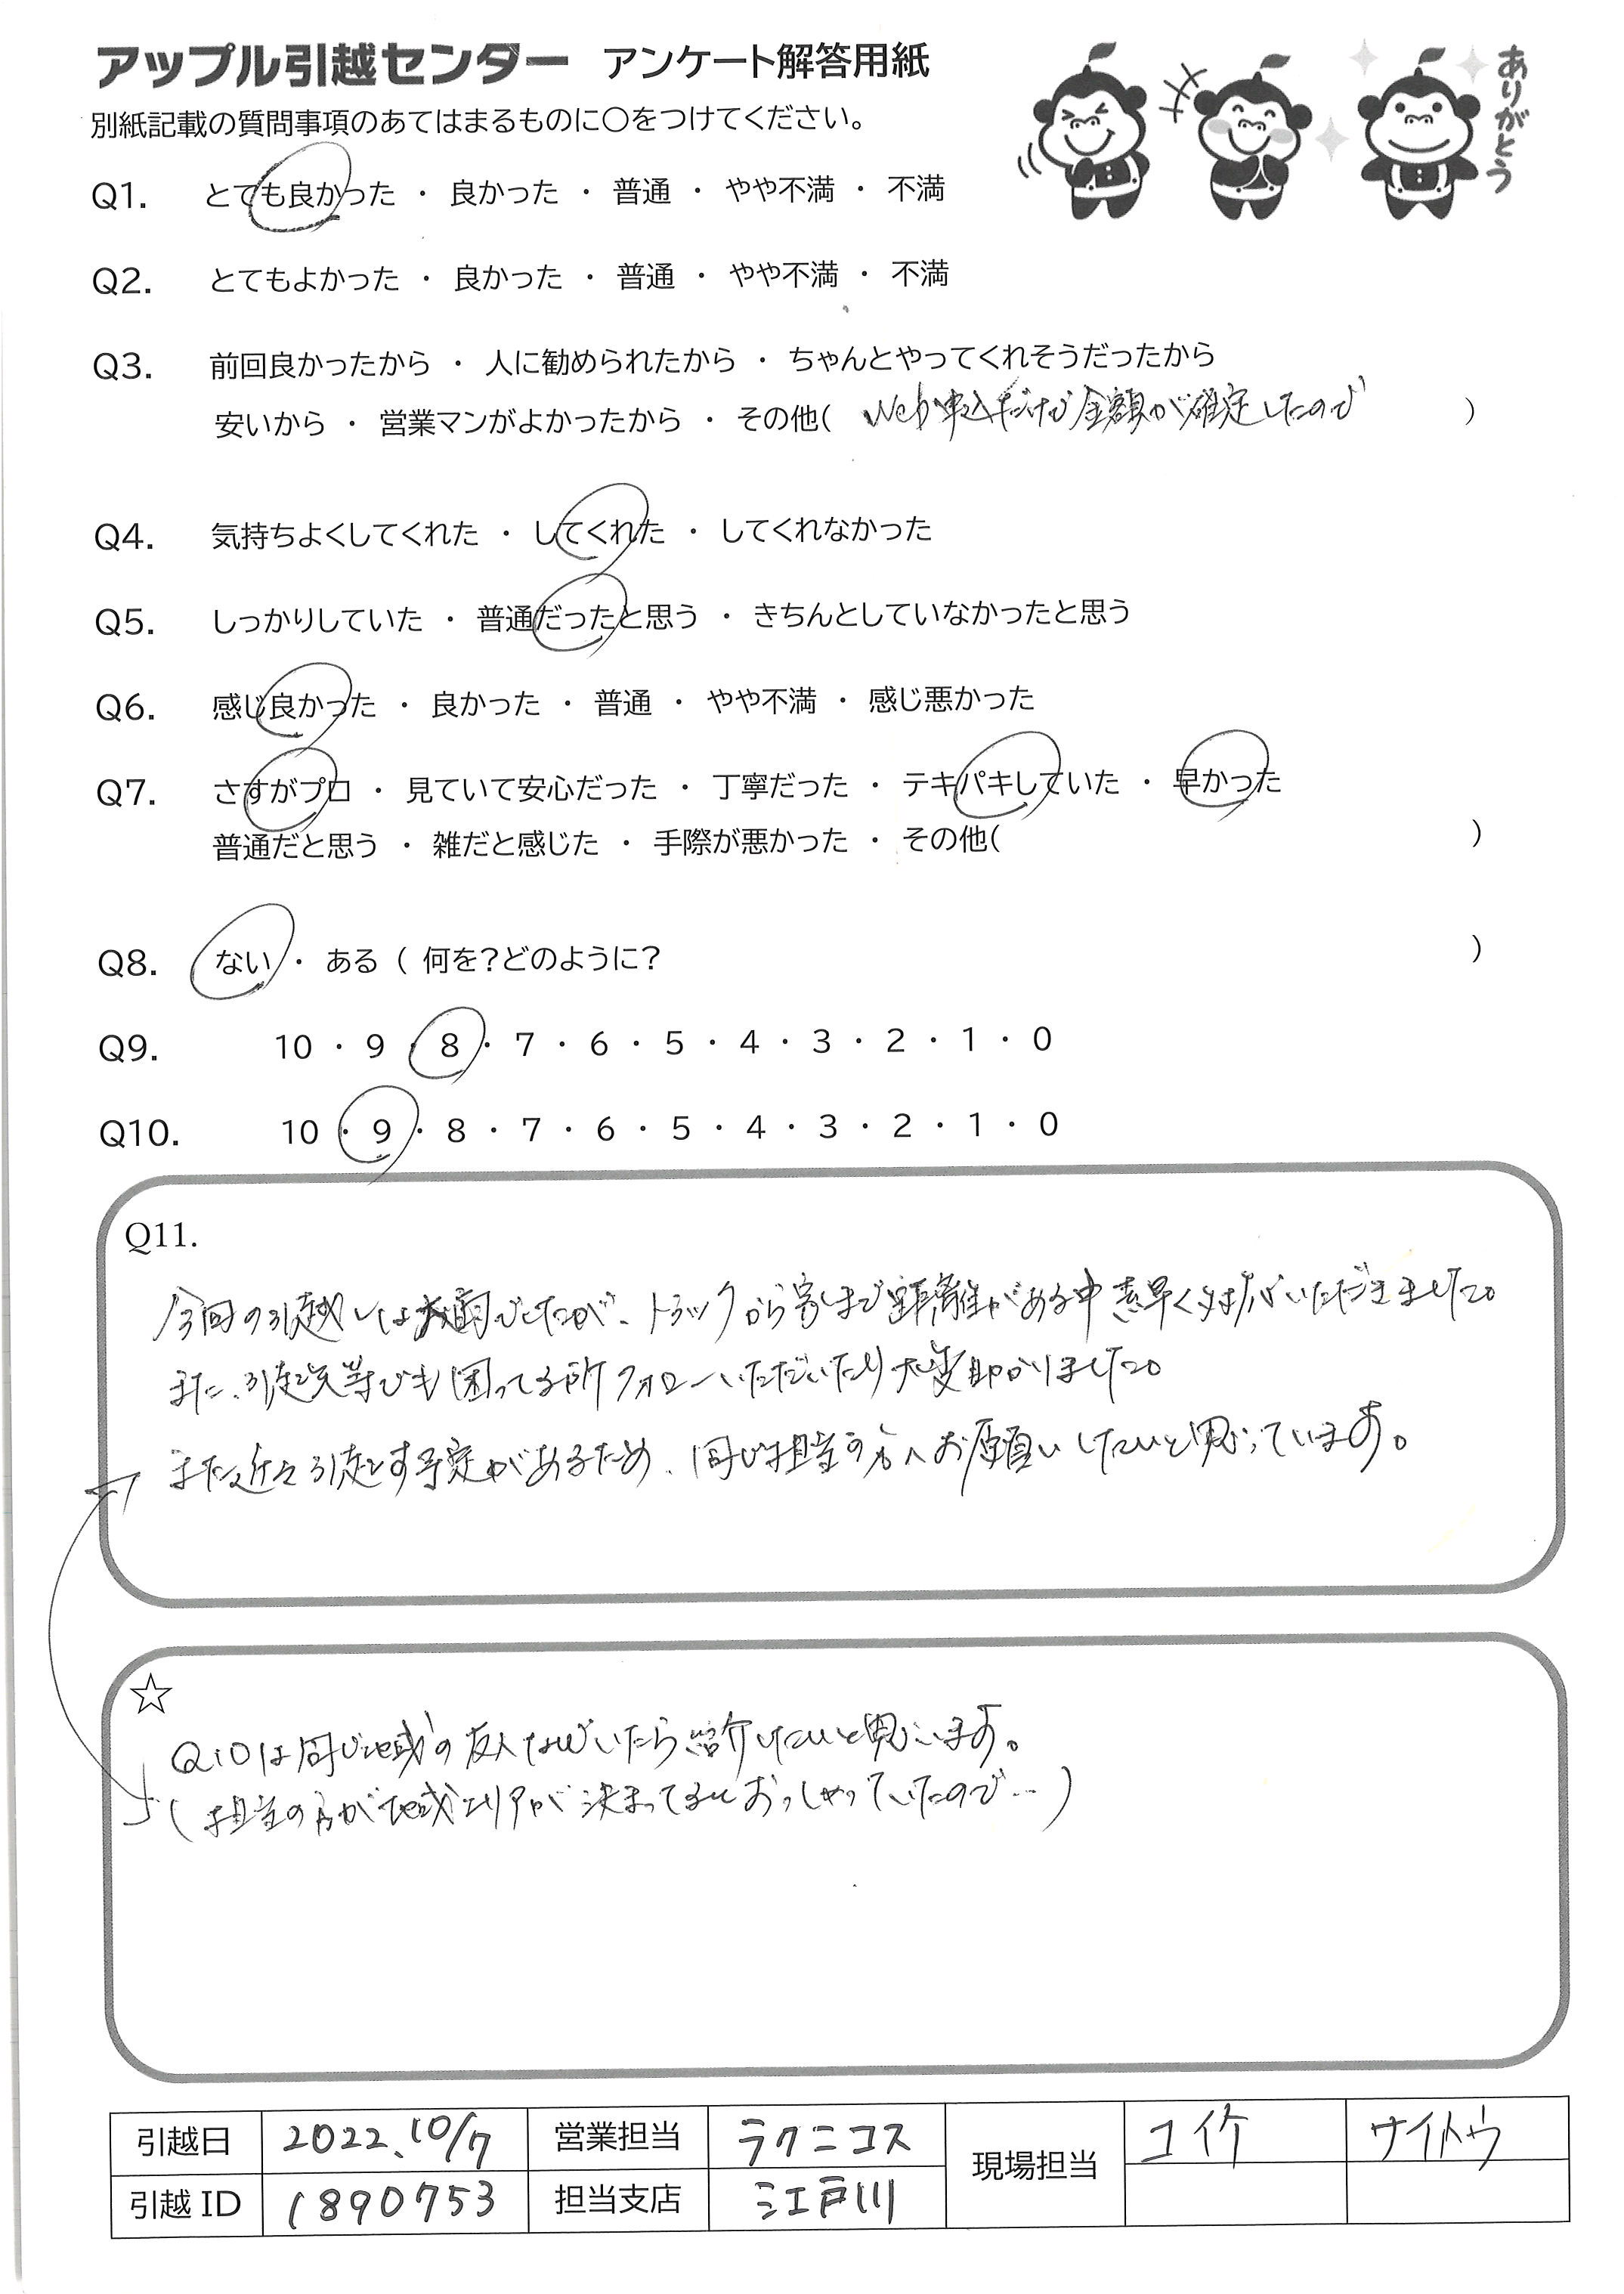 アップル引越センター アンケート解答用紙
ありがとう
別紙記載の質問事項のあてはまるものに○をつけてください。
Q1. とても良かった ・ 良かった ・ 普通 ・ やや不満 ・ 不満
Q2. とてもよかった ・ 良かった ・ 普通 ・ やや不満 ・ 不満
Q3. 前回良かったから ・ 人に勧められたから ・ ちゃんとやってくれそうだったから
安いから ・ 営業マンがよかったから ・ その他( Web申込だけで金額が確定したので )
Q4. 気持ちよくしてくれた ・ してくれた ・ してくれなかった
Q5. しっかりしていた ・ 普通だったと思う ・ きちんとしていなかったと思う
Q6. 感じ良かった ・ 良かった ・ 普通 ・ やや不満 ・ 感じ悪かった
Q7. さすがプロ ・ 見ていて安心だった ・ 丁寧だった ・ テキパキしていた ・ 早かった
普通だと思う ・ 雑だと感じた ・ 手際が悪かった ・ その他( )
Q8. ない ・ ある ( 何を?どのように? )
Q9. 10 ・ 9 ・ 8 ・ 7 ・ 6 ・ 5 ・ 4 ・ 3 ・ 2 ・ 1 ・ 0
Q10. 10 ・ 9 ・ 8 ・ 7 ・ 6 ・ 5 ・ 4 ・ 3 ・ 2 ・ 1 ・ 0
Q11.
今回の引越しは大雨でしたが、トラックから家まで距離がある中素早く対応いただきました。
また、引越先等でも困ってる所フォローいただいたり大変助かりました。
また近々引越す予定があるため、同じ担当の方へお願いしたいと思っています。
☆
Q10は同じ地域の友人などいたら紹介したいと思います。
(担当の方が地域エリアが決まってるとおっしゃっていたので…)
引越日 2022.10/7 営業担当 ラクニコス 現場担当 コイケ サイトウ
引越ID 1890753 担当支店 江戸川